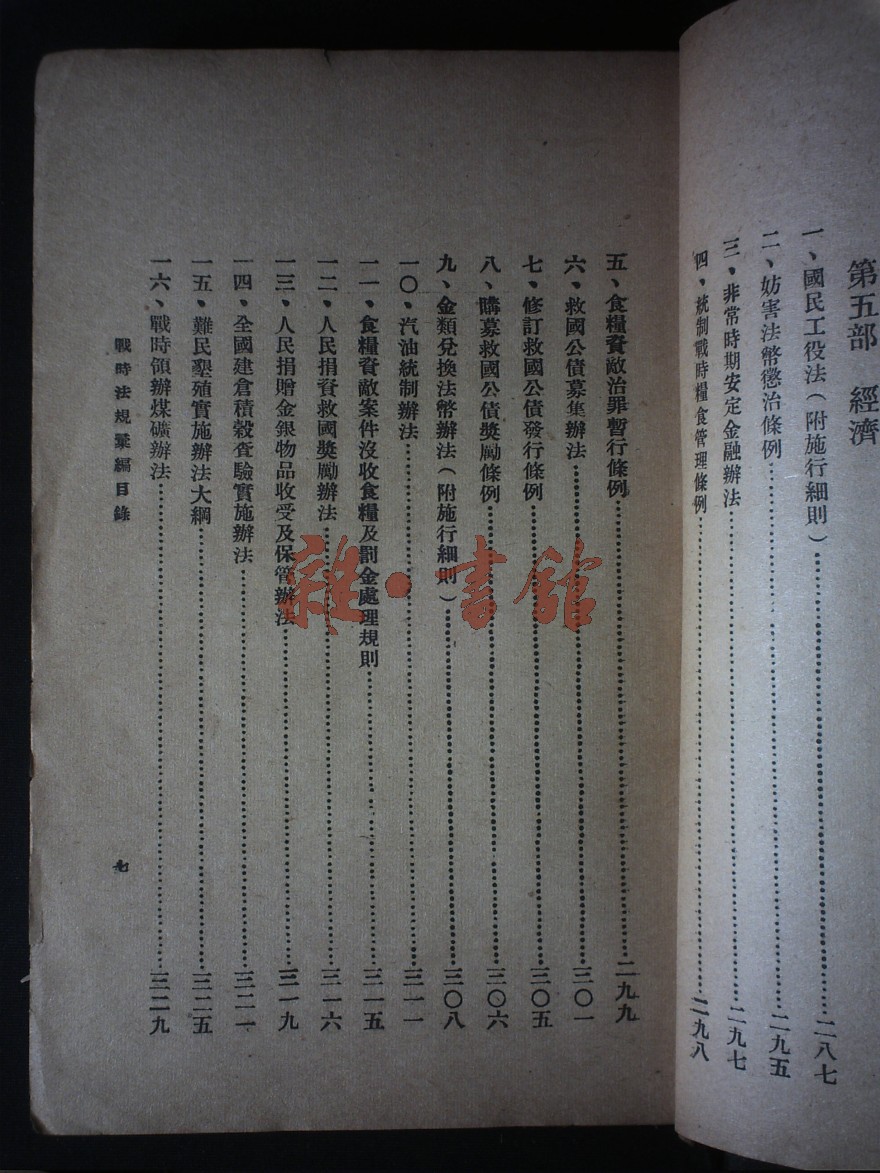 第五部　經濟
一、國民工役法（附施行細則）……二八七
二、妨害法幣懲治條例……二九五
三、非常時期安定金融辦法……二九七
四、統制戰時糧食管理條例……二九八
五、食糧資敵治罪暫行條例……二九九
六、救國公債募集辦法……三〇一
七、修訂救國公債發行條例……三〇五
八、購募救國公債獎勵條例……三〇六
九、金類兌換法幣辦法（附施行細則）……三〇八
一〇、汽油統制辦法……三一一
一一、食糧資敵案件沒收食糧及罰金處理規則……三一五
一二、人民捐資救國獎勵辦法……三一六
一三、人民捐贈金銀物品收受及保管辦法……三一九
一四、全國建倉積穀查驗實施辦法……三二一
一五、難民墾殖實施辦法大綱……三二五
一六、戰時領辦煤礦辦法……三二九
戰時法規彙編目錄
七
雜·書館